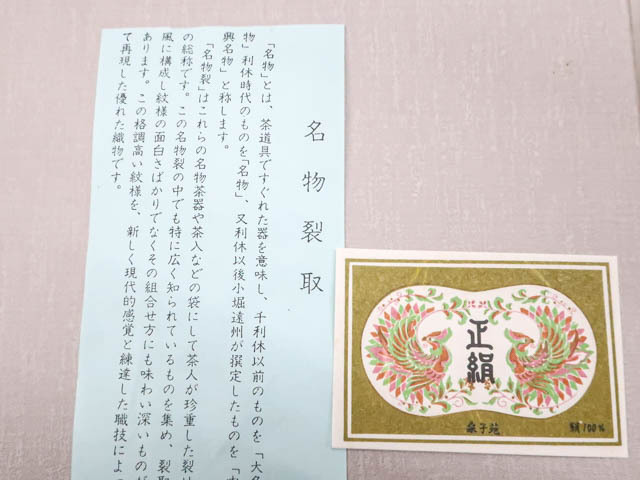 名物裂取
「名物」とは、茶道具ですぐれた器を意味し、千利休以前のものを「大名
物」利休時代のものを「名物」、又利休以後小堀遠州が撰定したものを「中
興名物」と称します。
「名物裂」はこれらの名物茶器や茶入などの袋にして茶人が珍重した裂地
の総称です。この名物裂の中でも特に広く知られているものを集め、裂取
風に構成し紋様の面白さばかりでなくその組合せ方にも味わい深いものが
あります。この格調高い紋様を、新しく現代的感覚と練達した職技によっ
て再現した優れた織物です。
正絹
泉子苑
絹100%